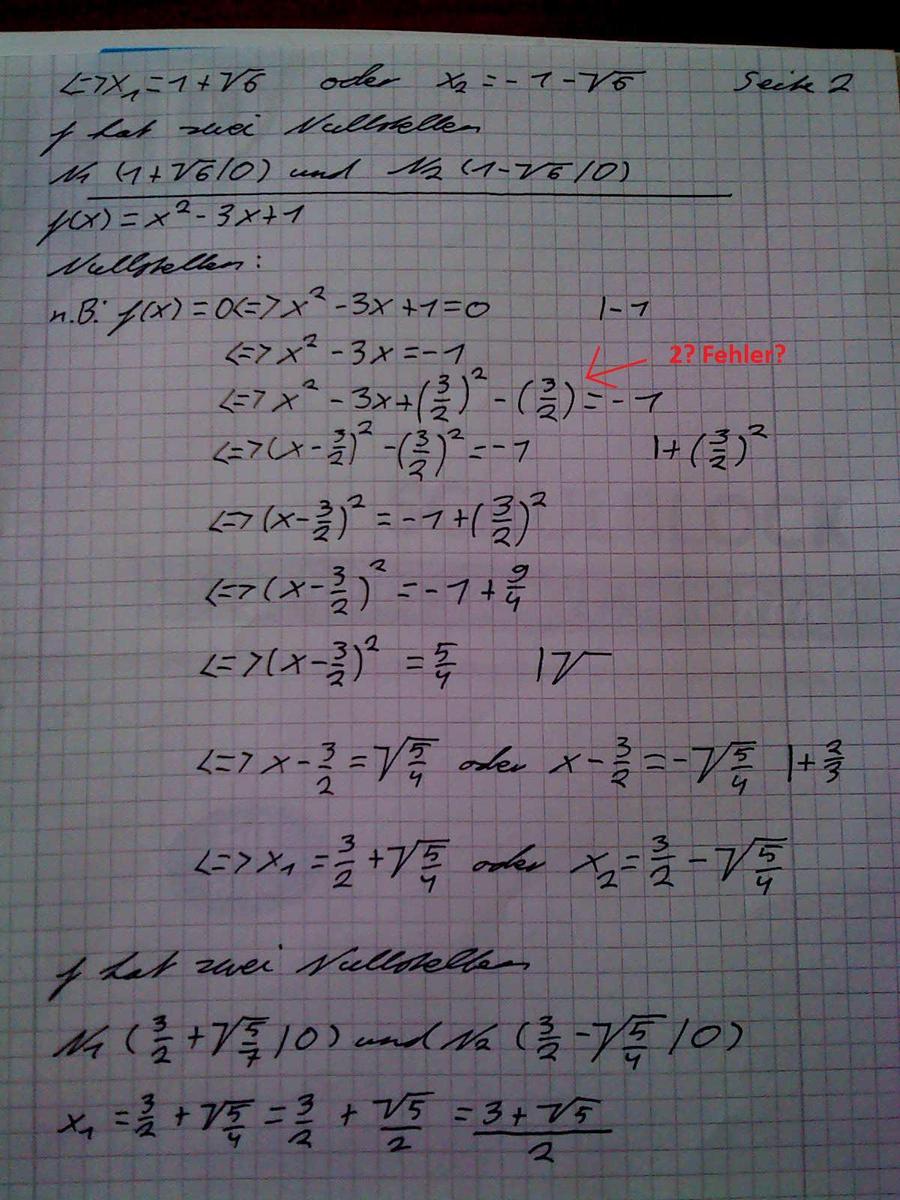 <=> x₁ = 1 + √6 oder x₂ = - 1 - √6 Seite 2
f hat zwei Nullstellen
N₁ (1 + √6 / 0) und N₂ (1 - √6 / 0)
f(x) = x² - 3x + 1
Nullstellen:
n.B: f(x) = 0 <=> x² - 3x + 1 = 0 | - 1
<=> x² - 3x = - 1
2? Fehler?
<=> x² - 3x + (3/2)² - (3/2) = - 1
<=> (x - 3/2)² - (3/2)² = - 1 | + (3/2)²
<=> (x - 3/2)² = - 1 + (3/2)²
<=> (x - 3/2)² = - 1 + 9/4
<=> (x - 3/2)² = 5/4 | √
<=> x - 3/2 = √(5/4) oder x - 3/2 = - √(5/4) | + 2/3
<=> x₁ = 3/2 + √(5/4) oder x₂ = 3/2 - √(5/4)
f hat zwei Nullstellen
N₁ (3/2 + √(5/7) / 0) und N₂ (3/2 - √(5/4) / 0)
x₁ = 3/2 + √(5/4) = 3/2 + √5/2 = (3 + √5)/2